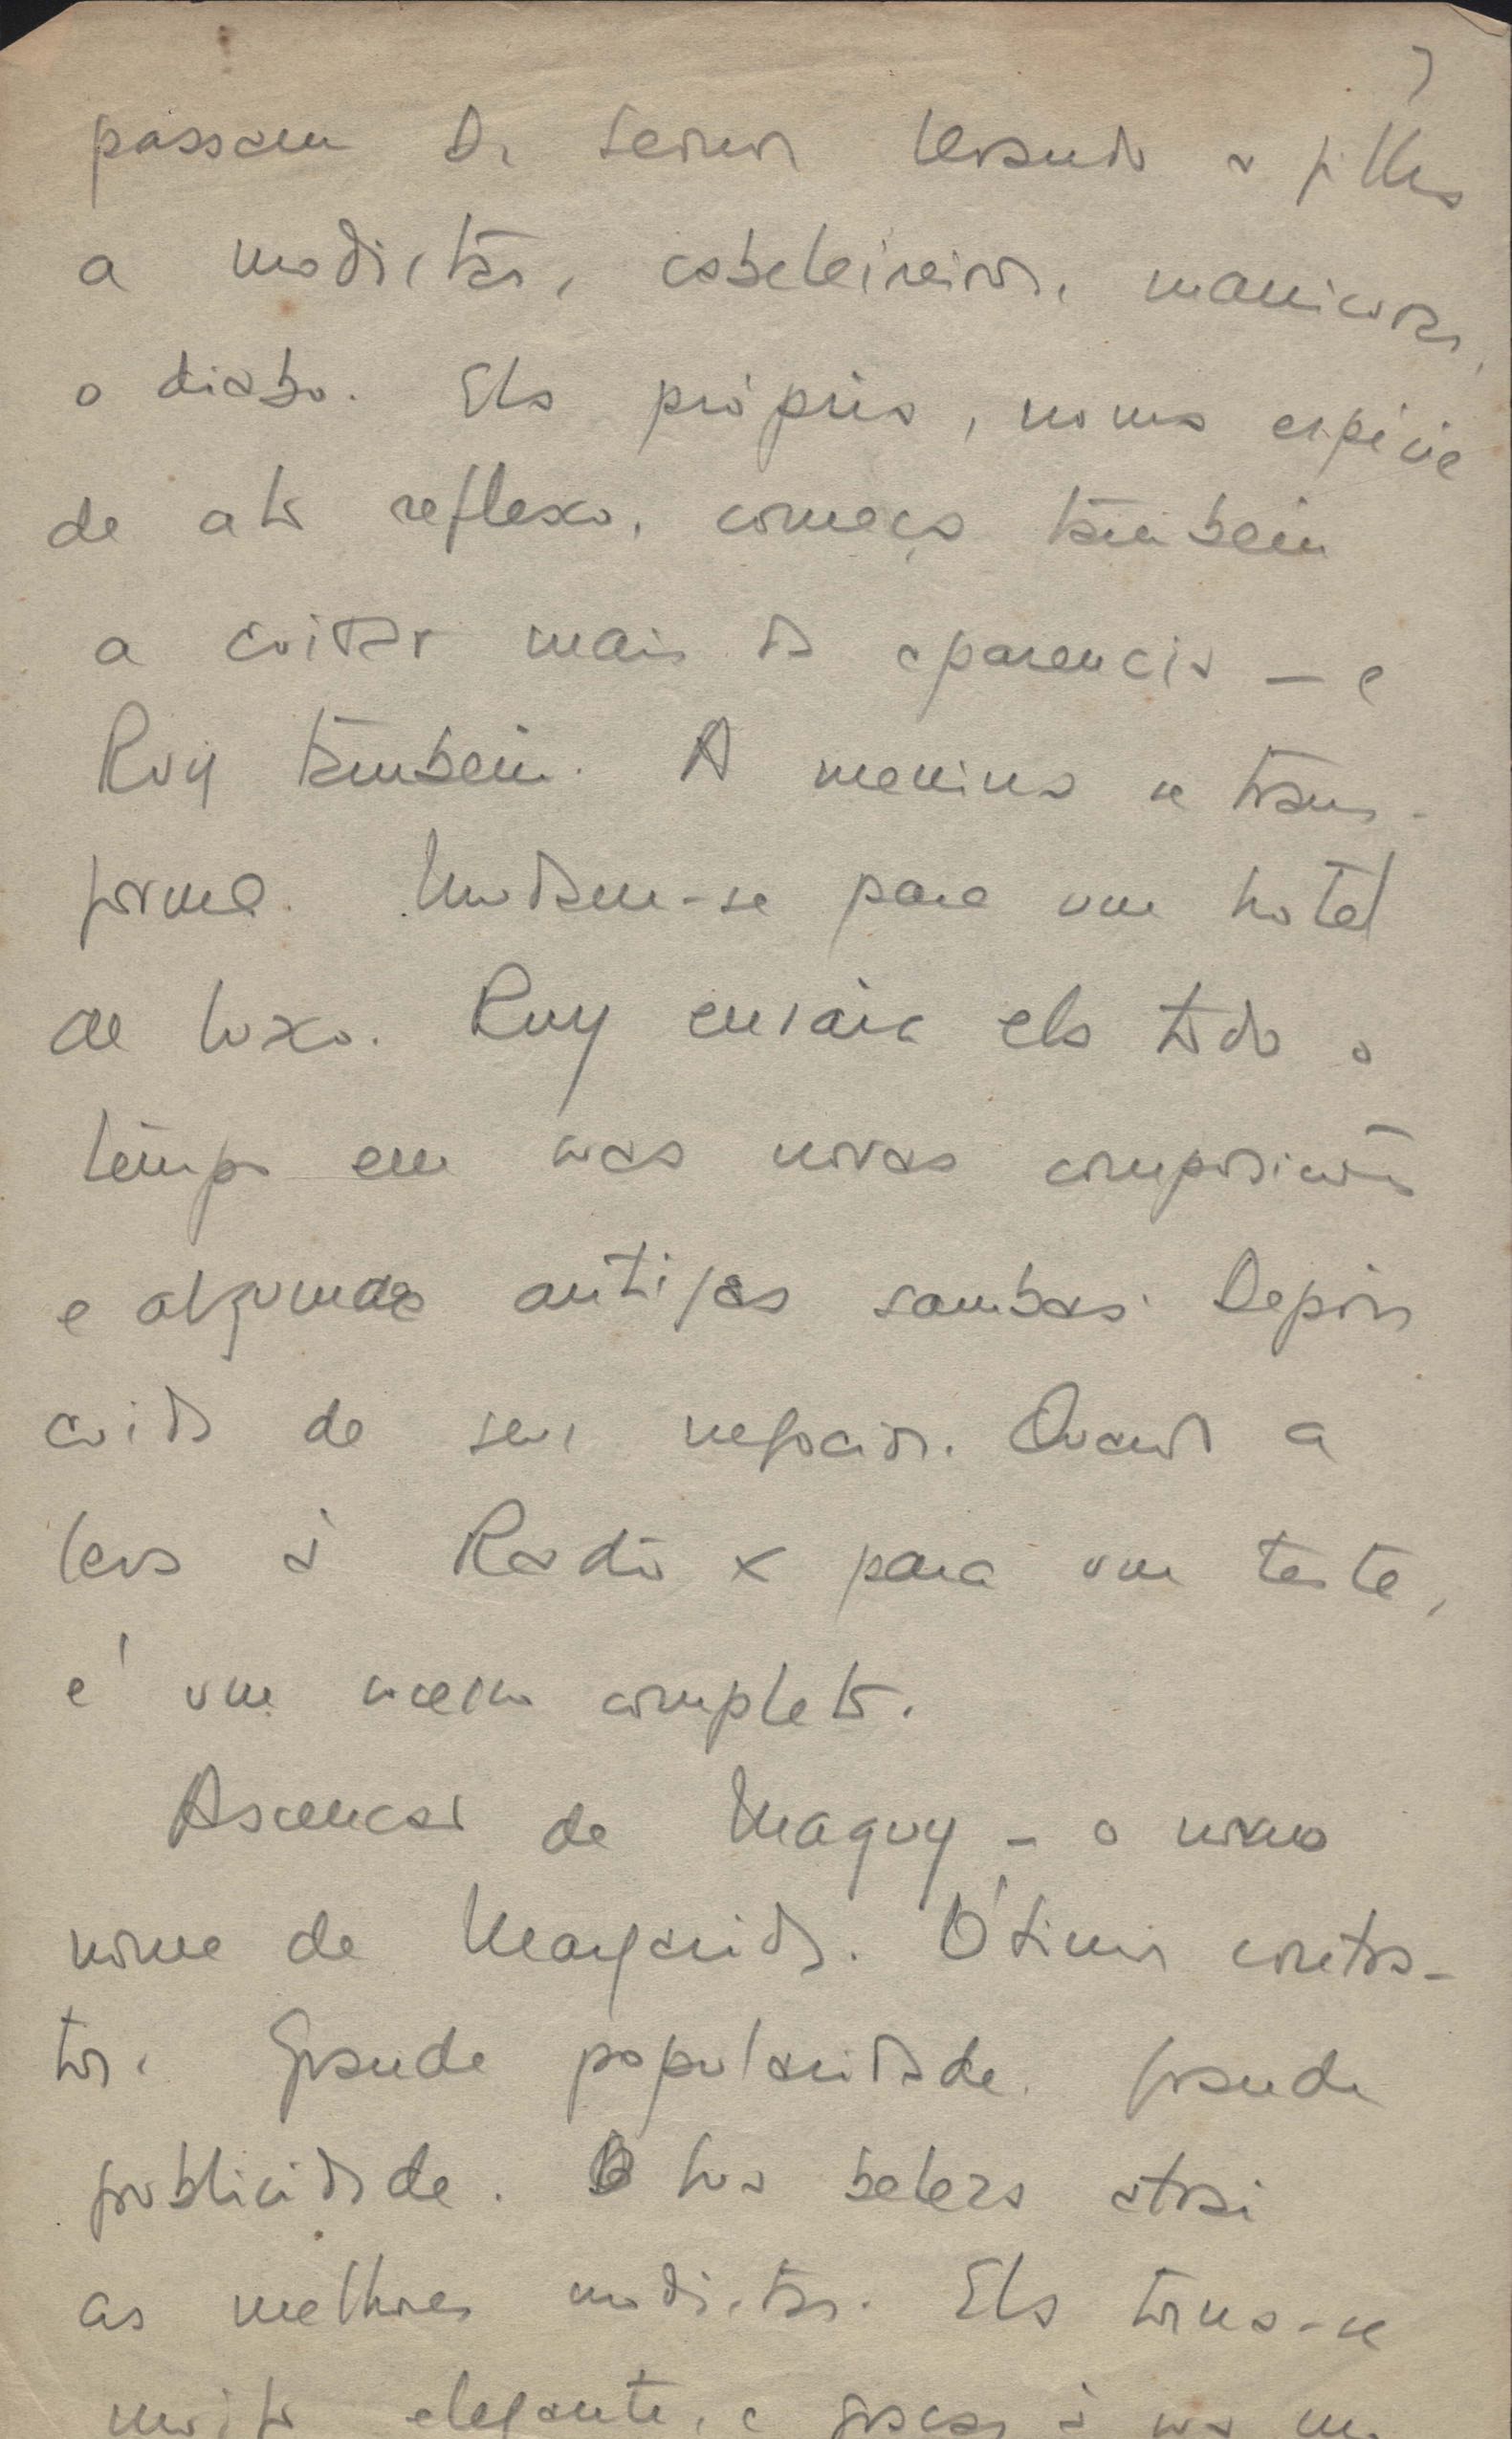 7
passam a semana levando a filha
a modistas, cabeleireiros, manicuras,
o diabo. Ela própria, numa espécie
de ato reflexo, começa também
a cuidar mais da aparencia — e
Ruy também. A menina se trans-
forma. Mudam-se para um hotel
de luxo. Ruy ensaia ela todo o
tempo em suas novas composições
e algumas antigas sambas. Depois
cuida de seus negocios. Quando a
leva à Radio X para um teste,
é um sucesso completo.
Ascensão de Maguy - o novo
nome de Margarida. Ótimos contra-
tos. Grande popularidade. Grande
publicidade. Sua beleza atrai
as melhores modistas. Ela torna-se
muito elegante, e graças à sua